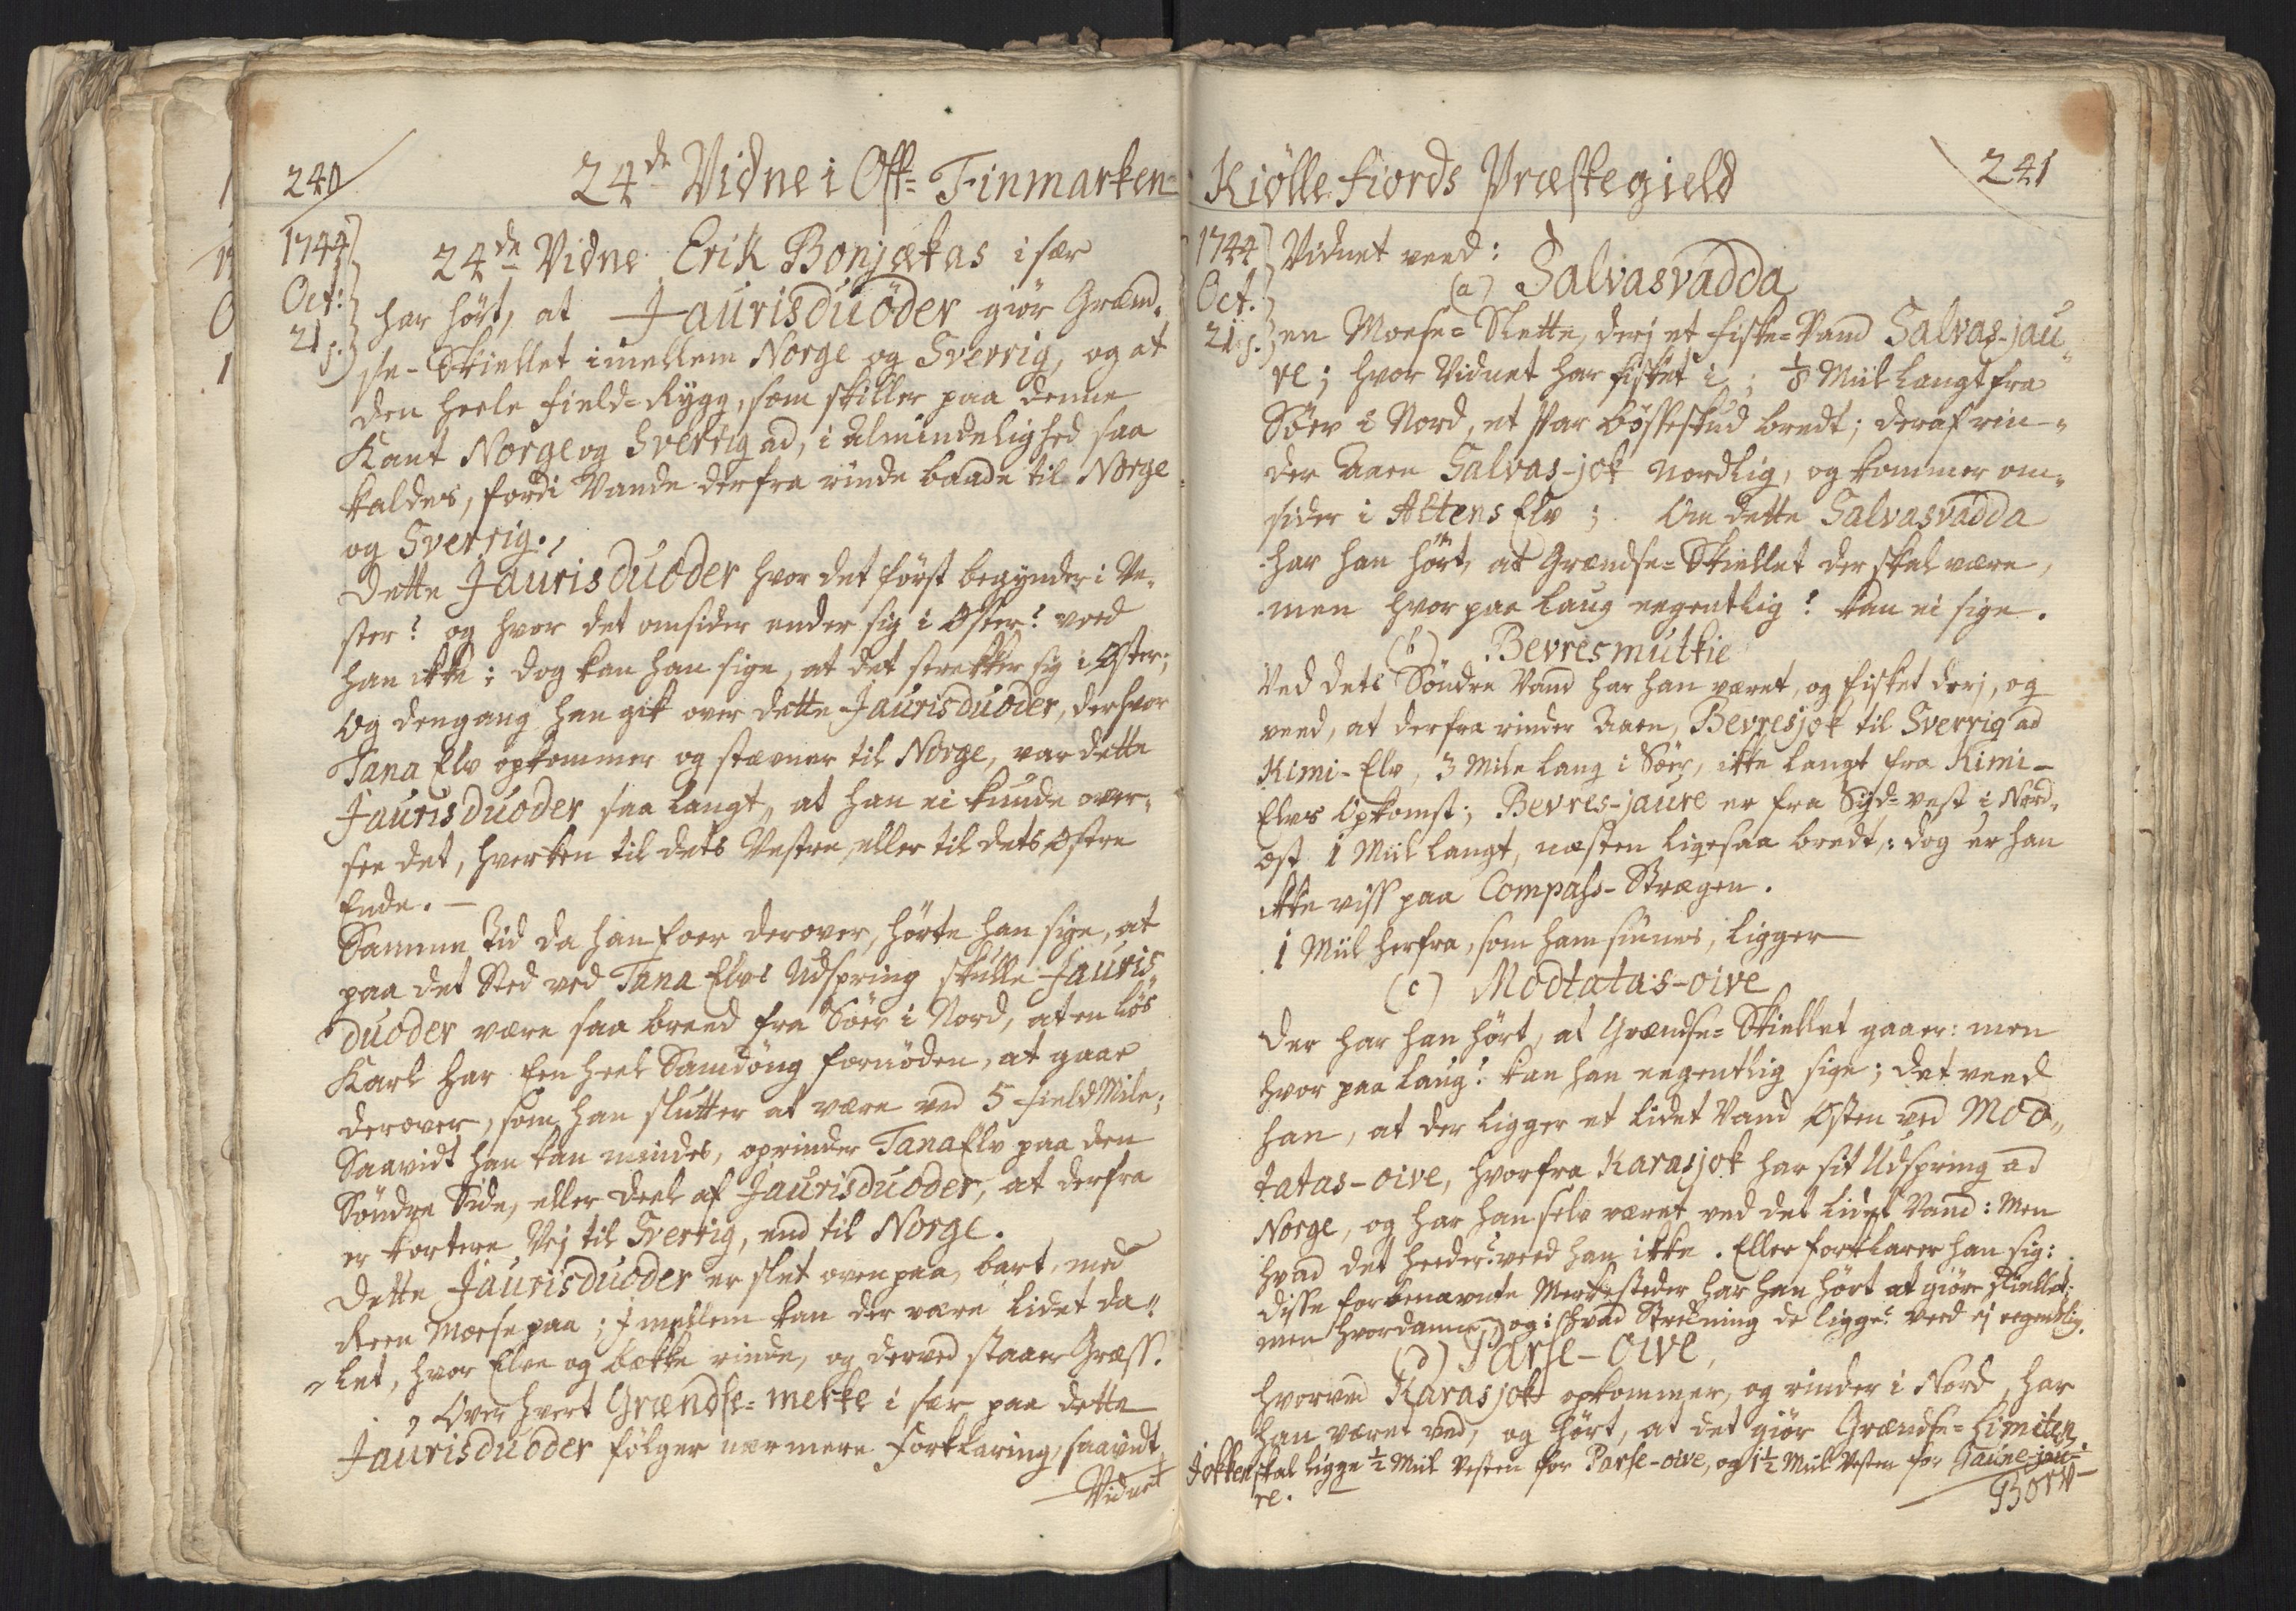 240
24de Vidne i Ost= Finmarken
1744
Oct:
21 s.
24de Vidne Erik Bonjækas i sær
har hört, at Jaurisduöder giör Grænd-
se-Skiellet imellem Norge og Sverrig, og at
den heele field=Rygg, som skiller paa denne
Kant Norge og Sverrig ad, i Almindelighed saa
kaldes, fordi Vande derfra rinde baade til Norge
og Sverrig.
Dette Jaurisduoder hvor det först begynder i Ve-
ster? og hvor det omsider ender sig i Öster? veed
han ikke; dog kan han sige, at det strekker sig i Öster;
Og dengang han gik over dette Jaurisduoder, derhvor
Tana Elv opkommer og stævner til Norge, var dette
Jaurisduoder saa langt, at han ei kunde over-
see det, hverken til dets Vestre eller til dets Östre
Ende. —
Samme Tid da han foer derover, hörte han sige, at
paa det Sted ved Tana Elvs Udspring skulle Jauris-
duoder være saa breed fra Söer i Nord, at en lös
Karl har Een heel Samdöng fornöden, at gaae
derover, som han slutter at være ved 5 field Mile;
Saavidt han kan mindes, oprinder Tana Elv paa den
Söndre Side, eller Deel af Jaurisduoder, at derfra
er kortere Vej til Sverrig, end til Norge.
Dette Jaurisduoder er slet ovenpaa, bart, med
Reen Moese paa; Jmellem kan der være lidet da-
let, hvor Elve og bække rinde, og derved staaer Græss.
Over hvert Grændse=merke i sær paa dette
Jaurisduoder fölger nærmere Forklaring, saavidt
Vidnet
Kiölle fiords Præstegield
241
1744
Oct.
21. s.
Vidnet veed:
(a) Salvasvadda
en Moese=Slette, derj et fiske=Vand Salvas-jau-
re; hvor Vidnet har fisket i; 1/8 Miil langt fra
Söer i Nord, et Par bösseskud bredt; deraf rin-
der Aaen Salvas-jok nordlig, og kommer om-
sider i Altens Elv; Om dette Salvasvadda
har han hört, at Grændse=Skiellet der skal være,
men hvor paa laug eegentlig? kan ei sige.
(b) Bevresmutkie
Ved dets Söndre Vand har han været, og fisket derj, og
veed, at derfra rinder Aaen, Bevresjok til Sverrig ad
Kimi-Elv, 3 Mile lang i Söer, ikke langt fra Kimi-
Elvs Opkomst; Bevres-jaure er fra Syd-vest i Nord-
ost 1 Miil langt, næsten ligesaa bredt,: dog er han
ikke viss paa Compass-Strægen.
1 Miil herfra, som ham siunes, ligger
(c) Modtatas-oive
der har han hört, at Grændse=Skiellet gaaer: men
hvor paa laug? kan han eegentlig sige; det veed
han, at der ligger et lidet Vand Östen ved Mod-
tatas-oive, hvorfra Karasjok har sit Udspring ad
Norge, og har han selv været ved det lidet Vand: Men
hvad det heeder? veed han ikke. Eller forklarer han sig:
disse forbenævnte Merkesteder har han hört at giöre Skiellet;
men hvordanne, og i hvad Strekning de ligge? veed ej eegentlig.
(d) Parse-oive,
hvorved Karasjok opkommer, og rinder i Nord, har
han været ved, og hört, at det giör Grændse=Limiten.
Jokken skal ligge 1/2 Miil Vesten for Parse-oive, og 1 1/2 Miil Vesten for Gaune-jau-
re.